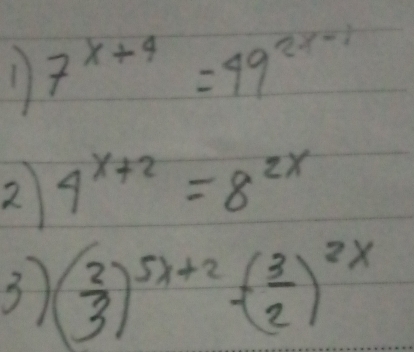 1) 7^(x+4) = 49^(2x-1)
2) 4^(x+2) = 8^(2x)
3) (2/3)^(5x+2) = (3/2)^(2x)